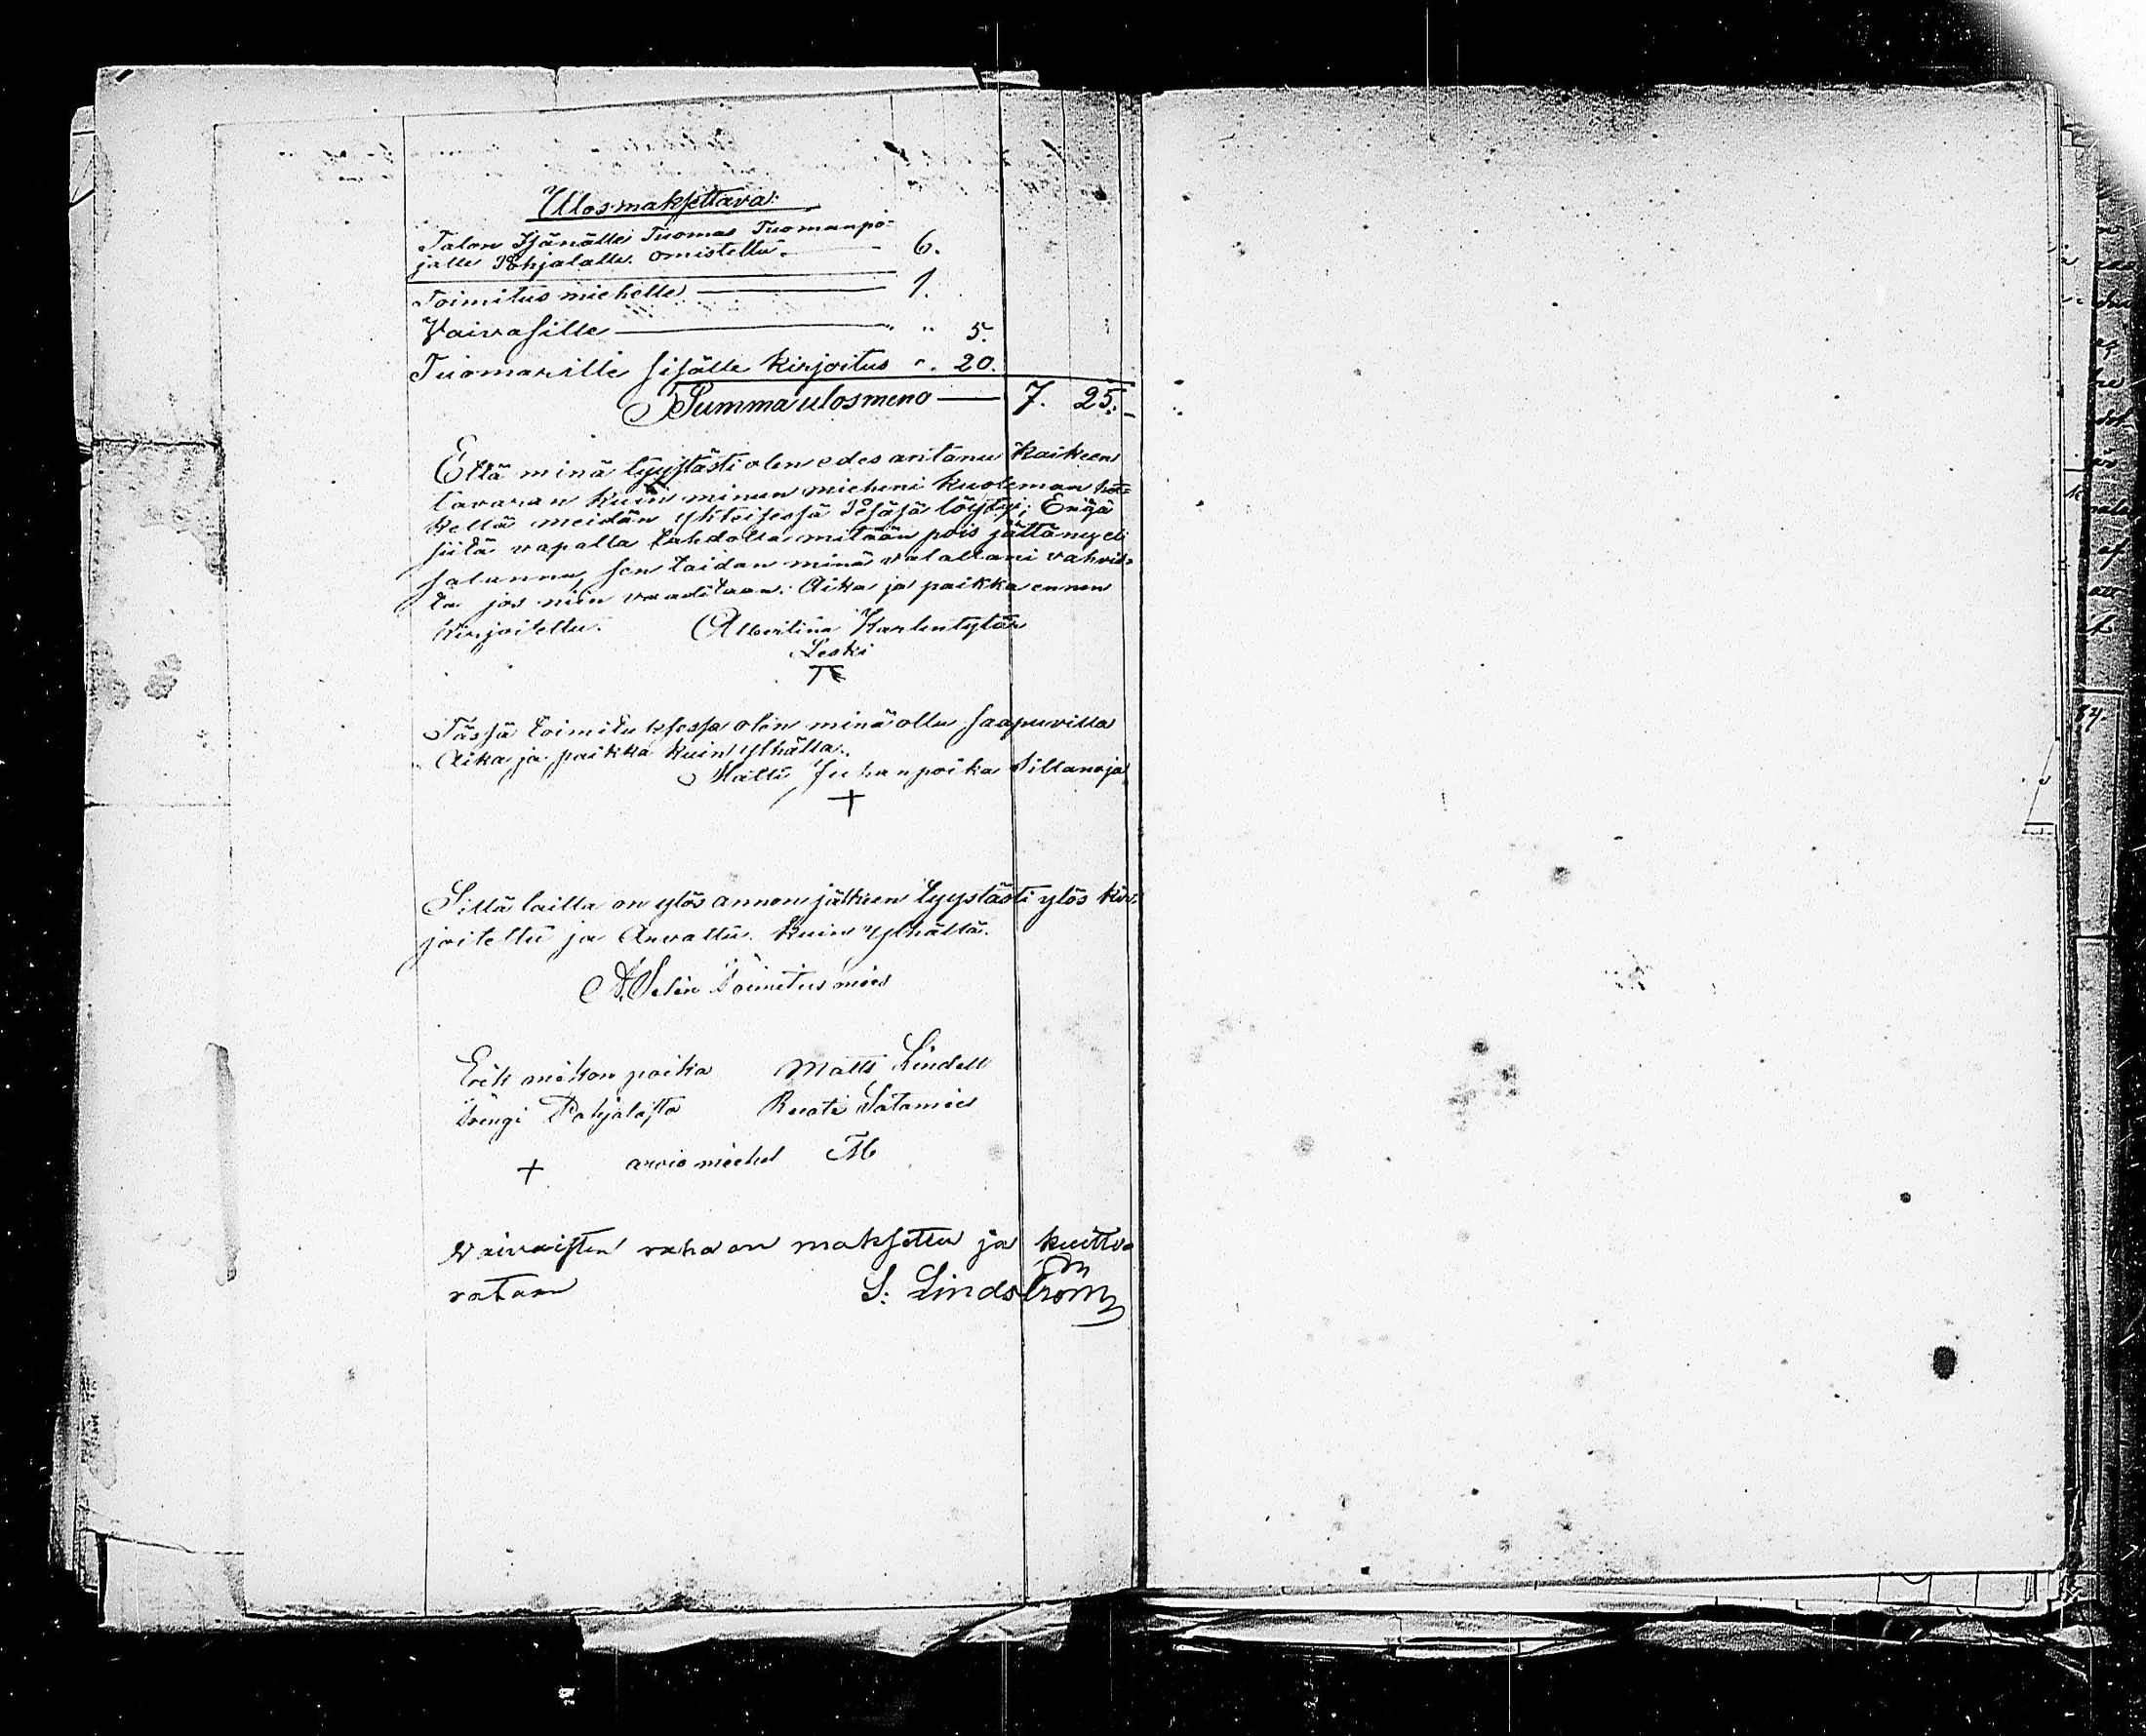 Ulosmaksettava:
Talon Isänälle Tuomas Tuomanpo-
jalle Pohjalalle omistettu. 6.
Toimitus miehelle 1.
Vaivasille " " 5.
Tuomarille sisälle kirjoitus " 20.
Summa ulosmeno 7. 25.
Että minä tyystästi olen edes antanu kaikeen
tavaran kuin minun mieheni kuoleman het-
kellä meidän yhteisessä Pesäsä löytyi; Engä
siitä vapalla tahdolla mitään pois jättäny eli
salannu, sen taidan minä valallani vahvis-
ta jos niin vaaditaan. Aika ja paikka ennen
kirjoitettu. Albertina Karlentytär
Leski
Tässä toimituksessa olen minä ollu saapuvilla
Aika ja paikka kuin ylhällä.
Matti Juhanpoika Sillanoja
+
Sillä lailla on ylös annon jälkeen tyystästi ylös kir-
joitettu ja Arvattu. kuin ylhällä.
A. Selin Toimitus mies
Erik poika Matts Lindell
Trengi Pohjalasta Ruoti Satamies
+ arvio miehet
Vaivaisten raha on maksettu ja kuitta-
rataan S. Lindström